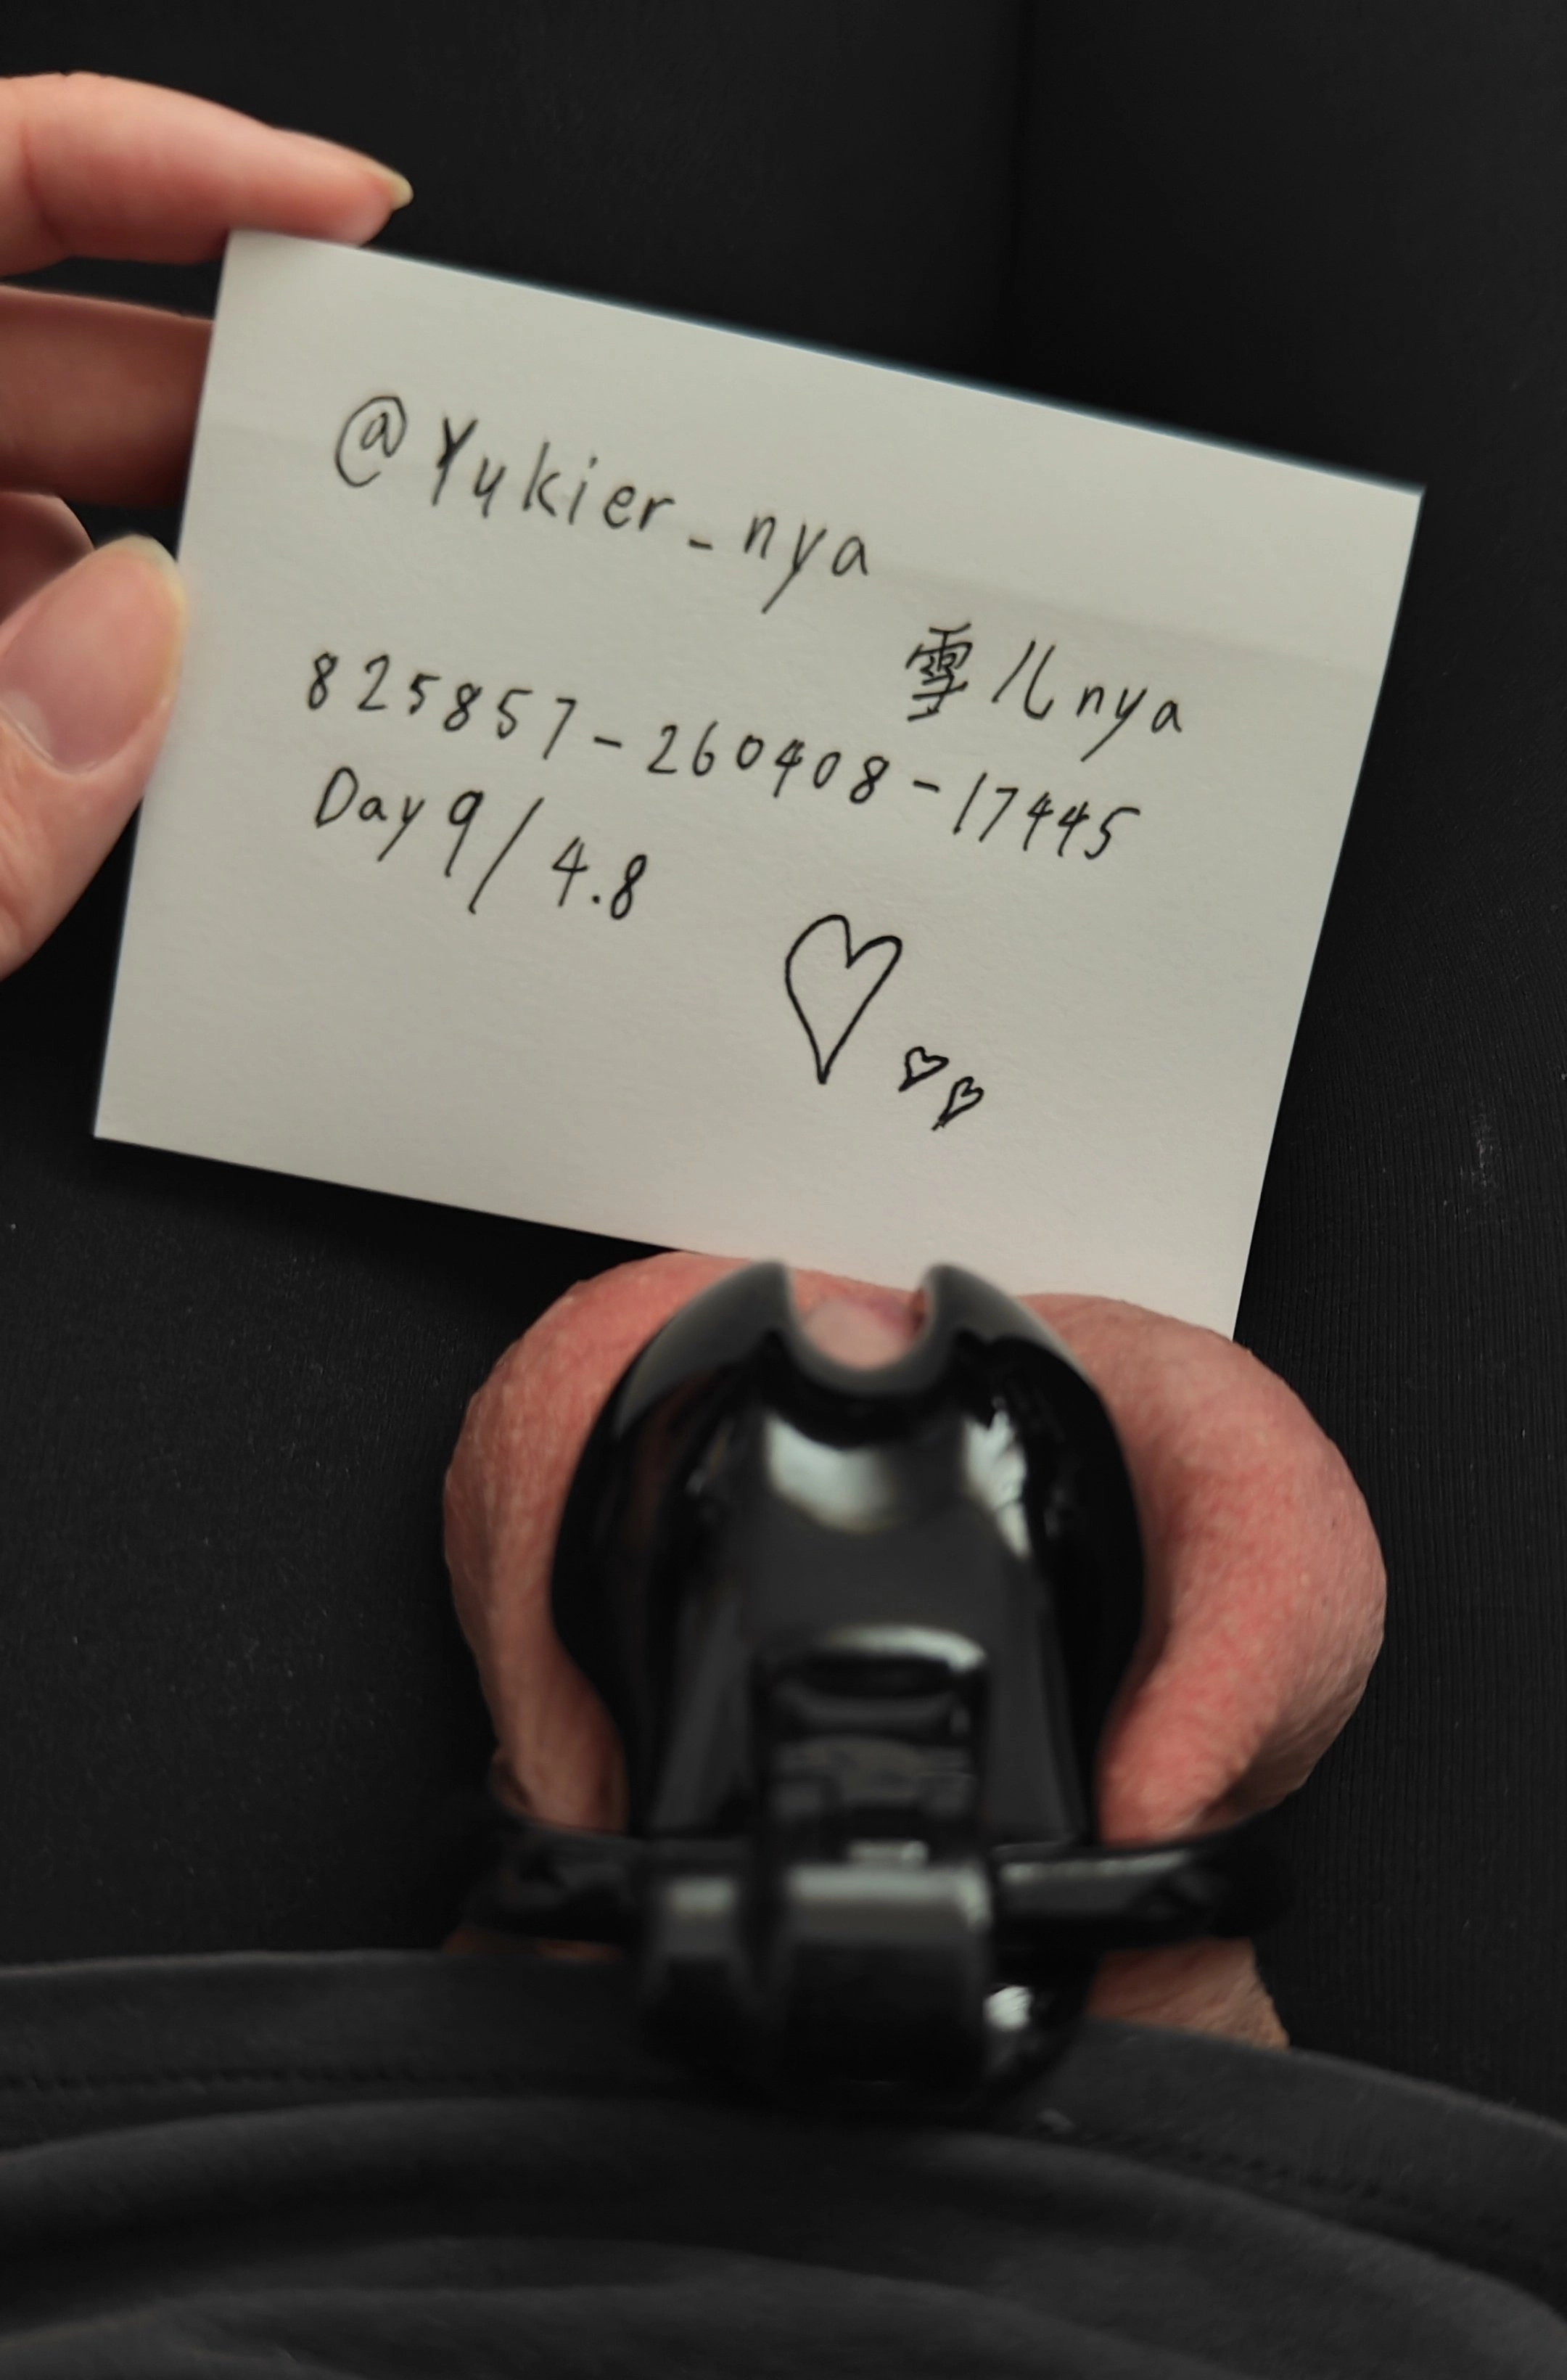 @Yukier_nya
雪儿nya
825857-260408-17445
Day9/4.8